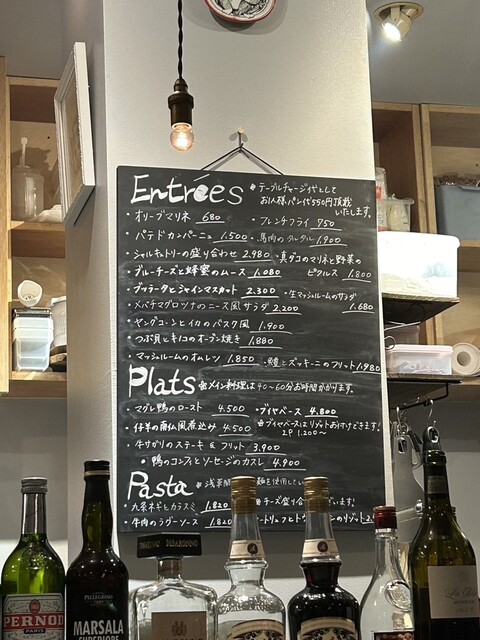 Entrées
※テーブルチャージ代として
お1人様パン代550円頂戴
いたします。
・オリーブマリネ 680
・フレンチフライ 750
・パテドカンパーニュ 1.500
・馬肉のタルタル 1.900
・シャルキュトリーの盛り合わせ 2.980
・真ダコのマリネと野菜の
ピクルス 1.800
・ブルーチーズと蜂蜜のムース 1.080
・ブッラータとシャインマスカット 2.300
・生マッシュルームのサラダ
1.680
・メバチマグロツナのニース風サラダ 2.200
・ヤングコーンとイカのバスク風 1.900
・つぶ貝とキノコのオーブン焼き 1.880
・マッシュルームのオムレツ 1.850
・鱧とズッキーニのフリット 1.980
Plats
※メイン料理は40〜60分お時間かかります。
・マグレ鴨のロースト 4.500
・ブイヤベース 4.800
※ブイヤベースはリゾットお付けできます!
2P 1.200〜
・仔羊の南仏風煮込み 4.500
・牛サガリのステーキ & フリット 3.900
・鴨のコンフィとソーセージのカスレ 4.900
Pasta
※浅草開 麺を使用してい
・九条ネギとカラスミ 1.820
チーズ盛り合 ございます!
・牛肉のラグーソース 1.820
のリゾット
PERNOD
PELLEGRINO
MARSALA
SUPERIORE